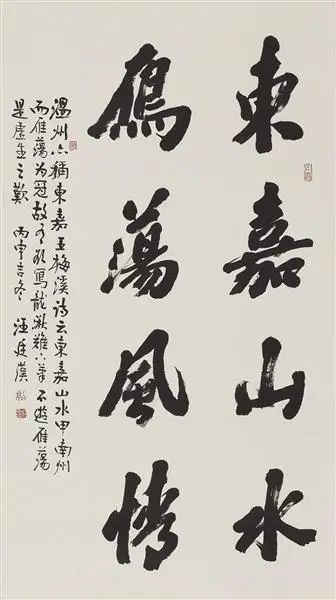 東嘉山水
鴈蕩風情
溫州亦稱東嘉王梅溪詩云東嘉山水甲南州
而雁蕩為冠故有欲寫龍湫難下筆不遊雁蕩
是虛生之歎 丙申吉冬 汪廷漢